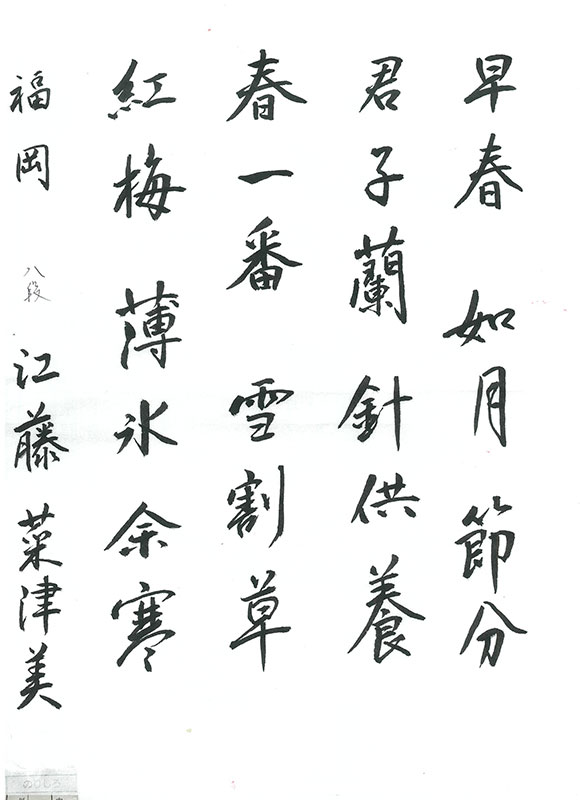 早春 如月 節分
君子蘭 針供養
春一番 雪割草
紅梅 薄氷 余寒
福岡 八段 江藤菜津美
のりしろ